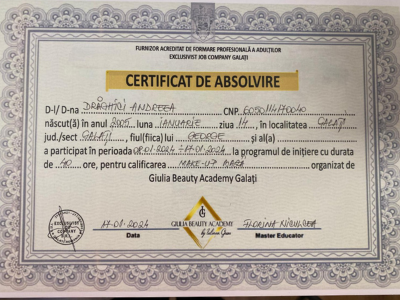 FURNIZOR ACREDITAT DE FORMARE PROFESIONALĂ A ADULTILOR
EXCLUSIVIST JOB COMPANY GALAȚI
CERTIFICAT DE ABSOLVIRE
D-l/ D-na DRĂGHICI ANDREEA CNP
născut(ă) în anul 2005 luna IANUARIE ziua 14, în localitatea GALAȚI
jud./sect GALAȚI, fiul(fiica) lui GEORGE și al(a)
a participat în perioada 08.01.2024 ÷ 17.01.2024 la programul de inițiere cu durata
de 40 ore, pentru calificarea MAKE-UP BAZA organizat de
Giulia Beauty Academy Galați
17.01.2024
Data
GIULIA BEAUTY ACADEMY
FLORINA NICULCEA
Master Educator